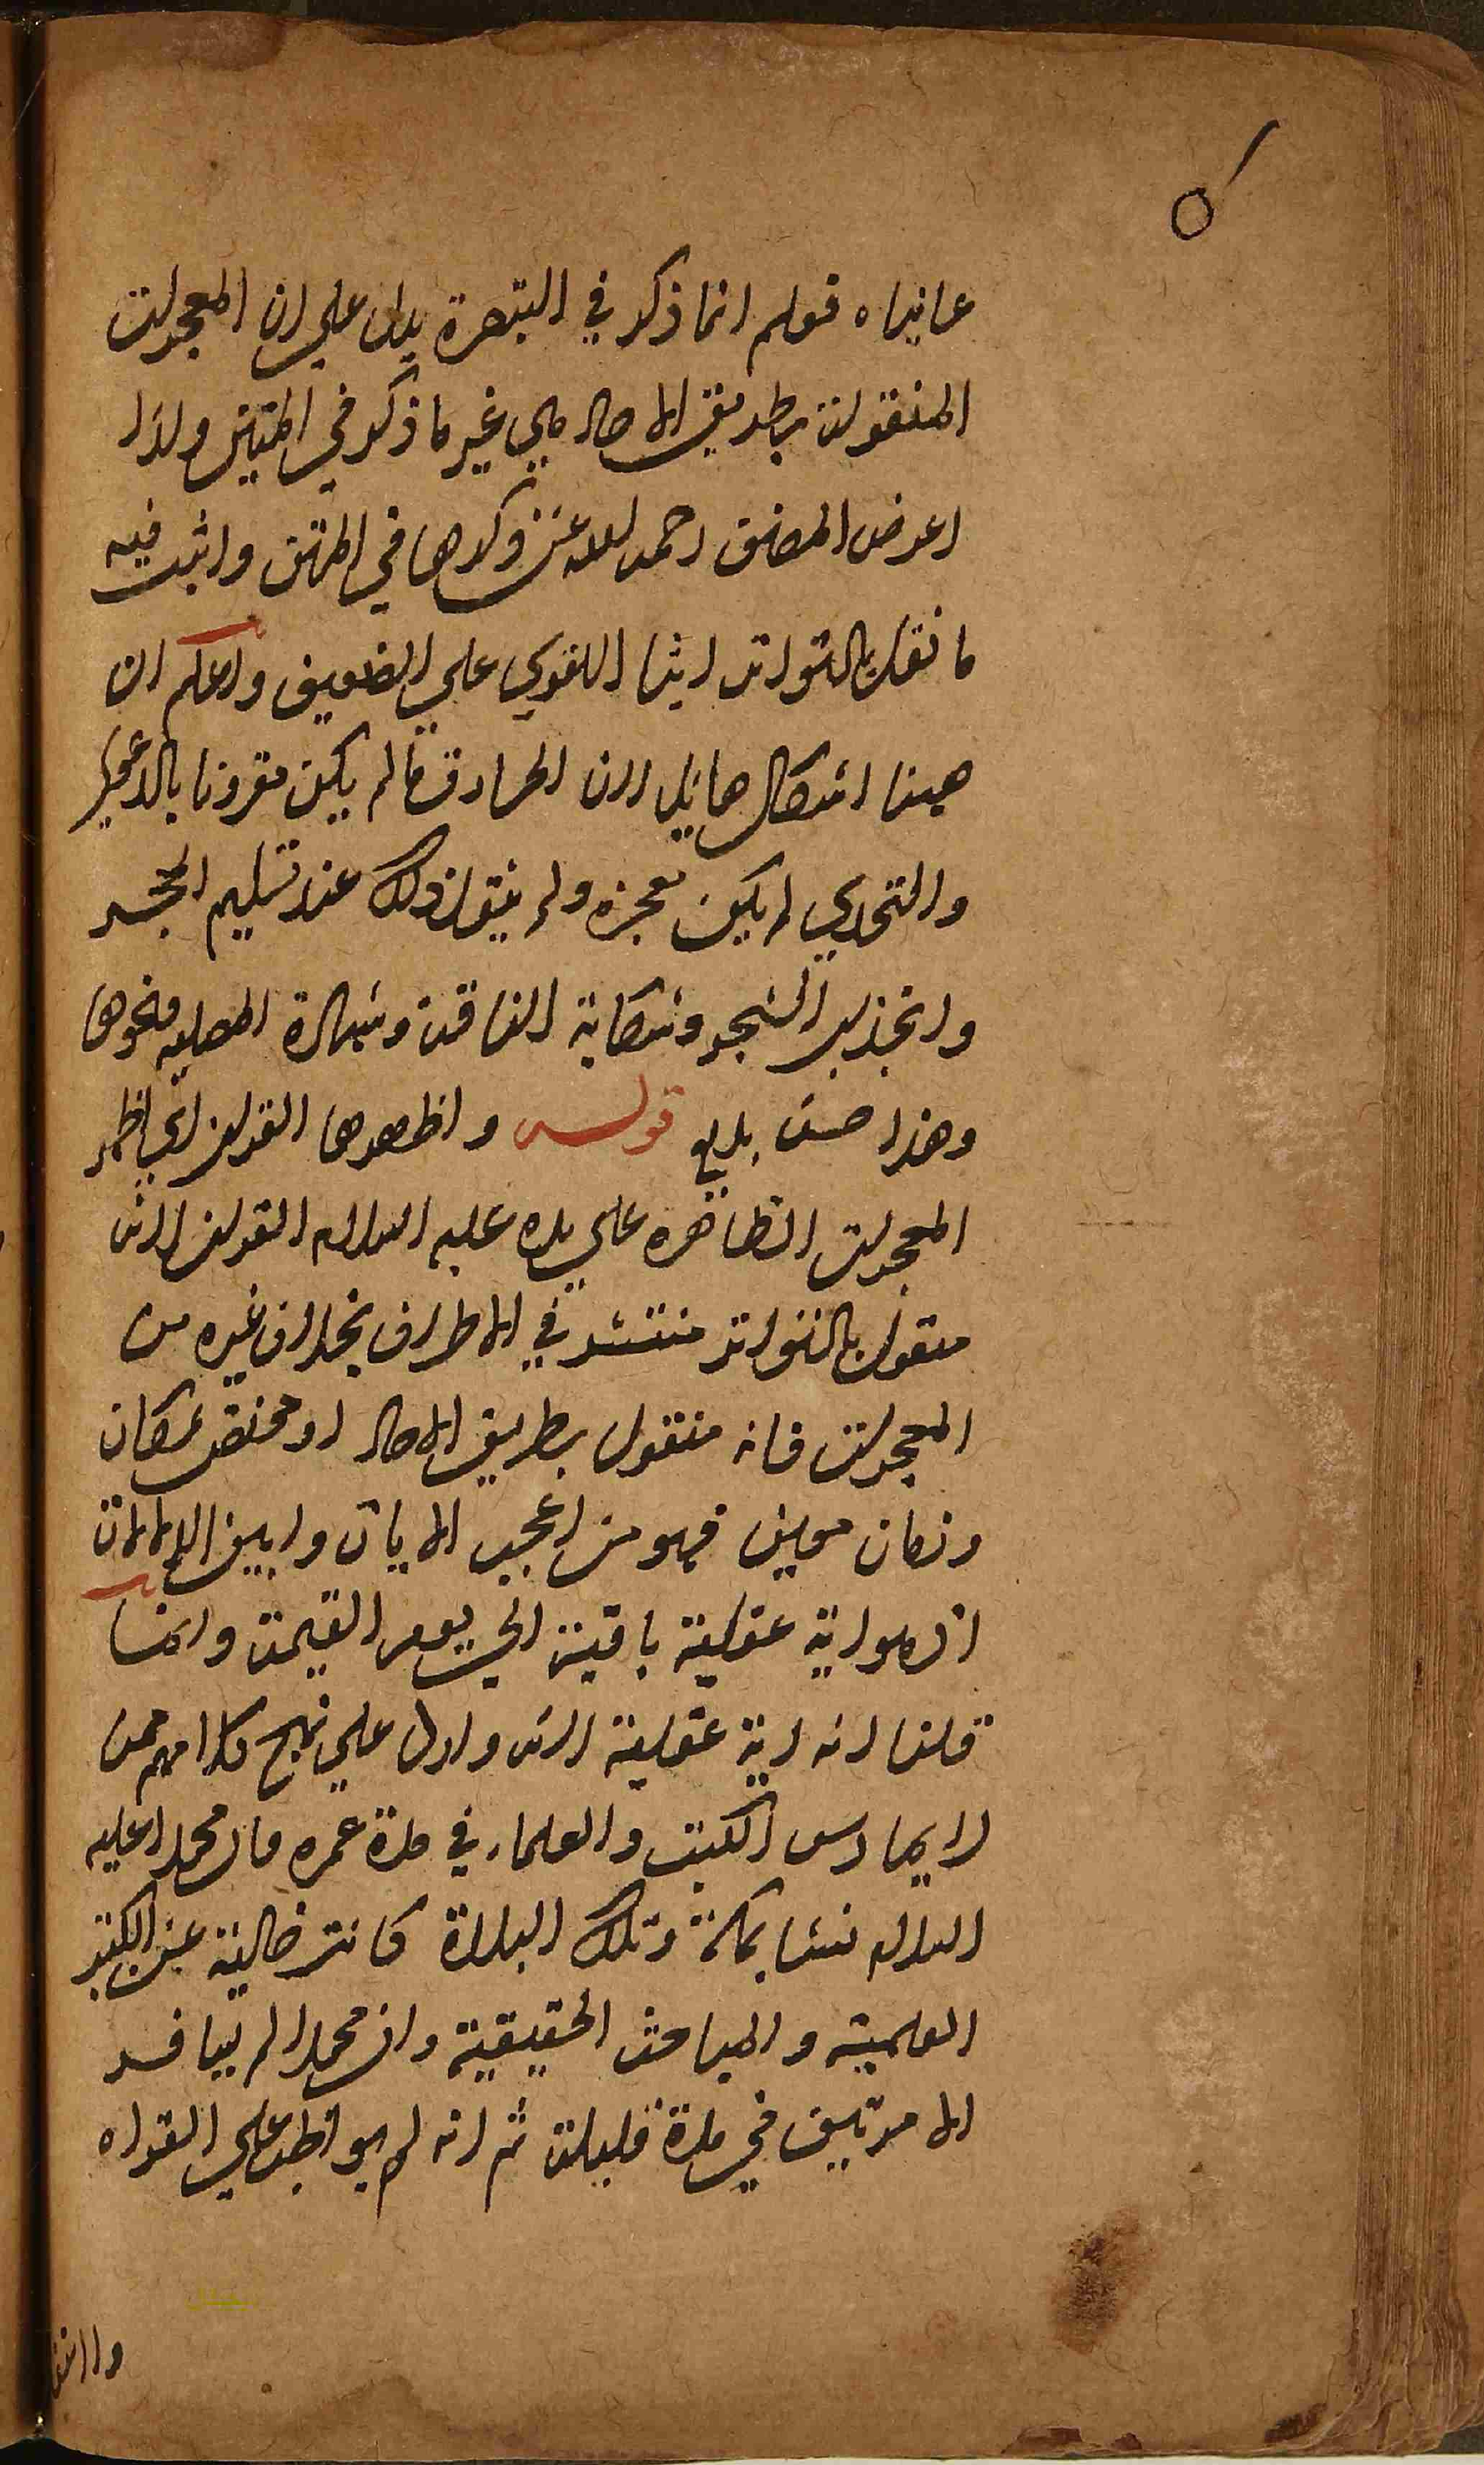 عانياه قولم انما ذكر في التبصرة يدل علي ان المعجزات
المنقولة بطريق الاحاد هي غير ما ذكر في المتين ولذا
اعرض المصنف رحمه الله عن ذكرها في المتن واثبت فيه
ما نقل بالتواتر ايثارا للقوي علي الضعيف واعلم ان
ههنا اشكال هايل لان الخارق ما لم يكن مقرونا بالدعوي
والتحدي لم يكن معجزة ولم ينقل ذلك عند تسليم الحجر
وانجذاب الشجر وشكاية الناقة وشهادة المصلية ونحوها
وهذا حسن بديع قوله واظهرها القران اي اظهر
المعجزات الظاهرة علي يده عليه السلام القران لانه
منقول بالتواتر منتشر في الاطراف بخلاف غيره من
المعجزات فانه منقول بطريق الاحاد او مختص بمكان
وزمان معين فهو من اعجب الايات وابين الدلالات
اذ هو اية عقلية باقية الي يوم القيمة وانما
قلنا انه اية عقلية لانه وارد علي نهج كلامهم ممن
لا يمارس الكتب والعلماء في مدة عمره فان محمدا عليه
السلام نشا بمكة وتلك البلدة كانت خالية عن الكتب
العلمية والمباحث الحقيقية وان محمدا لم يسافر
الا مرتين في مدة قليلة ثم انه لم يواظب علي القراة